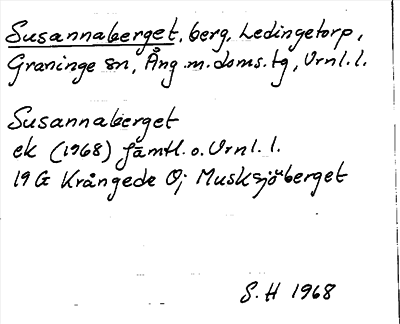 Susannaberget, berg, Ledingetorp,
Graninge sn, Ång.m.doms.tg, Vrnl.l.
Susannaberget
ek (1968) Jämtl. o. Vrnl. l.
19G Krångede Öj Musksjöberget
S.H 1968